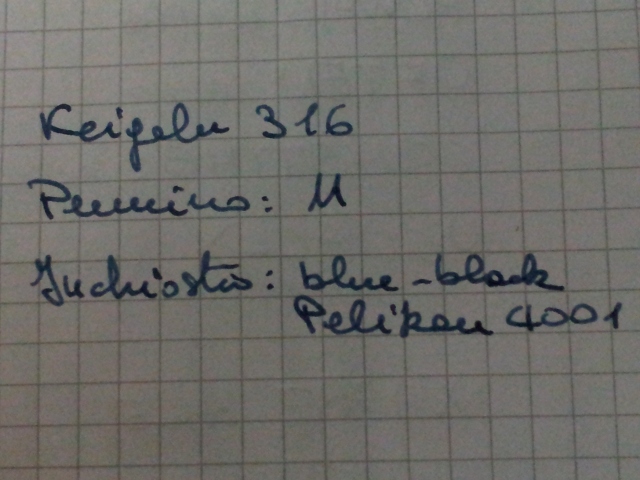 Kaigelu 316
Pennino: M
Inchiostro: blue-black
Pelikan 4001